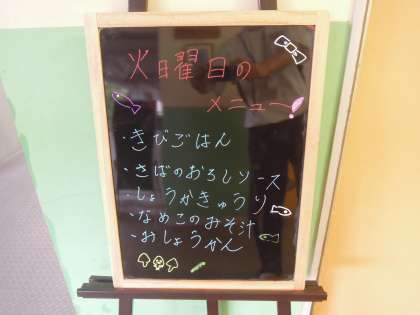 火曜日の
メニュー!
・きびごはん
・さばのおろしソース
・しょうがきゅうり
・なめこのみそ汁
・おしょうかん